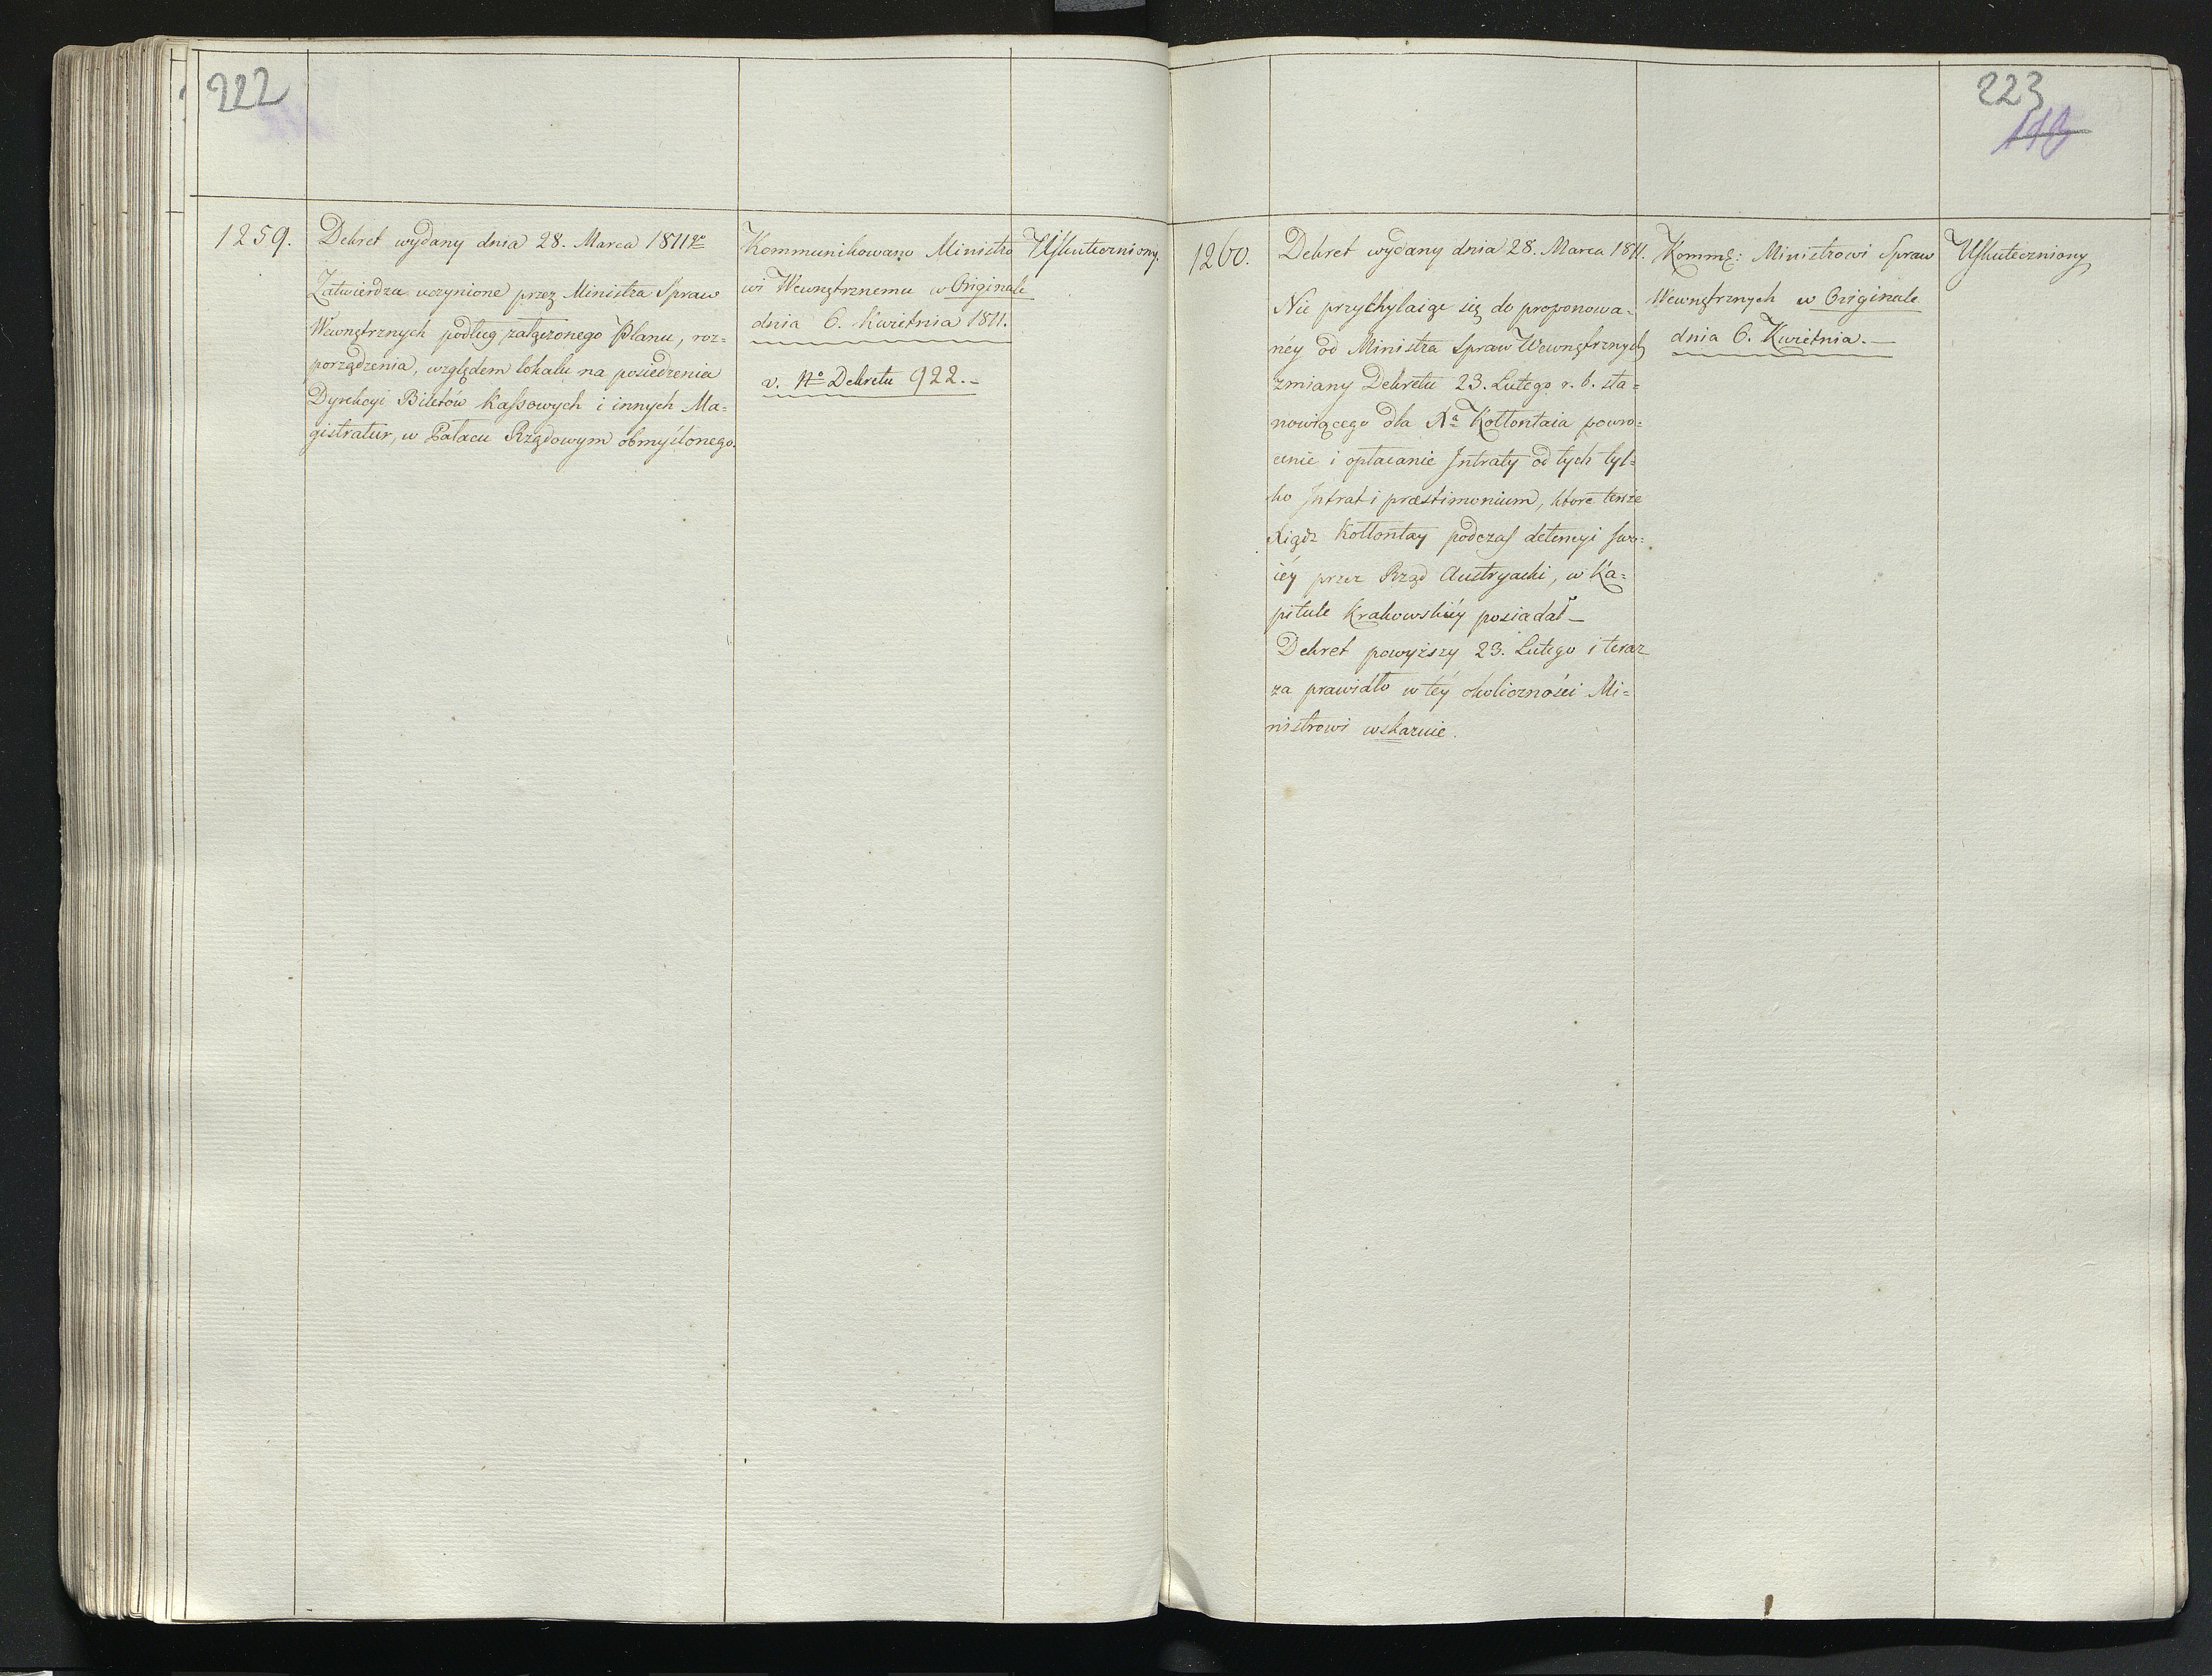 222
1259.
Dekret wydany dnia 28. Marca 1811 Ro
Zatwierdza uczynione przez Ministra Spraw
Wewnętrznych podług załączonego Planu, roz=
porządzenia, względem lokalu na posiedzenia
Dyrekcyi Biletów Kassowych i innych Ma=
gistratur, w Pałacu Rządowym obmyślonego.
Kommunikowano Ministro
wi Wewnętrznemu w Originale
dnia 6. Kwietnia 1811.
v. No Dekretu 922.-
Uskuteczniony.
223
110
1260.
Dekret wydany dnia 28. Marca 1811.
Nie przychylaiąc się do proponowa=
néy od Ministra Spraw Wewnętrznych
zmiany Dekretu 23. Lutego r. b. sta=
nowiącego dla Xa Kołłontaia powro=
cenie i opłacanie Intraty od tych tyl=
ko Intrat i præstimonium, które tenże
Xiądz Kołłontay podczas detencyi swo=
iéy przez Rząd Austryacki, w Ka=
pitule Krakowskiéy posiadał —
Dekret powyższy 23. Lutego i teraz
za prawidło w téy okoliczności Mi=
nistrowi wskazuie.
Kommę: Ministrowi Spraw
Wewnętrznych w Originale
dnia 6. Kwietnia. —
Uskuteczniony